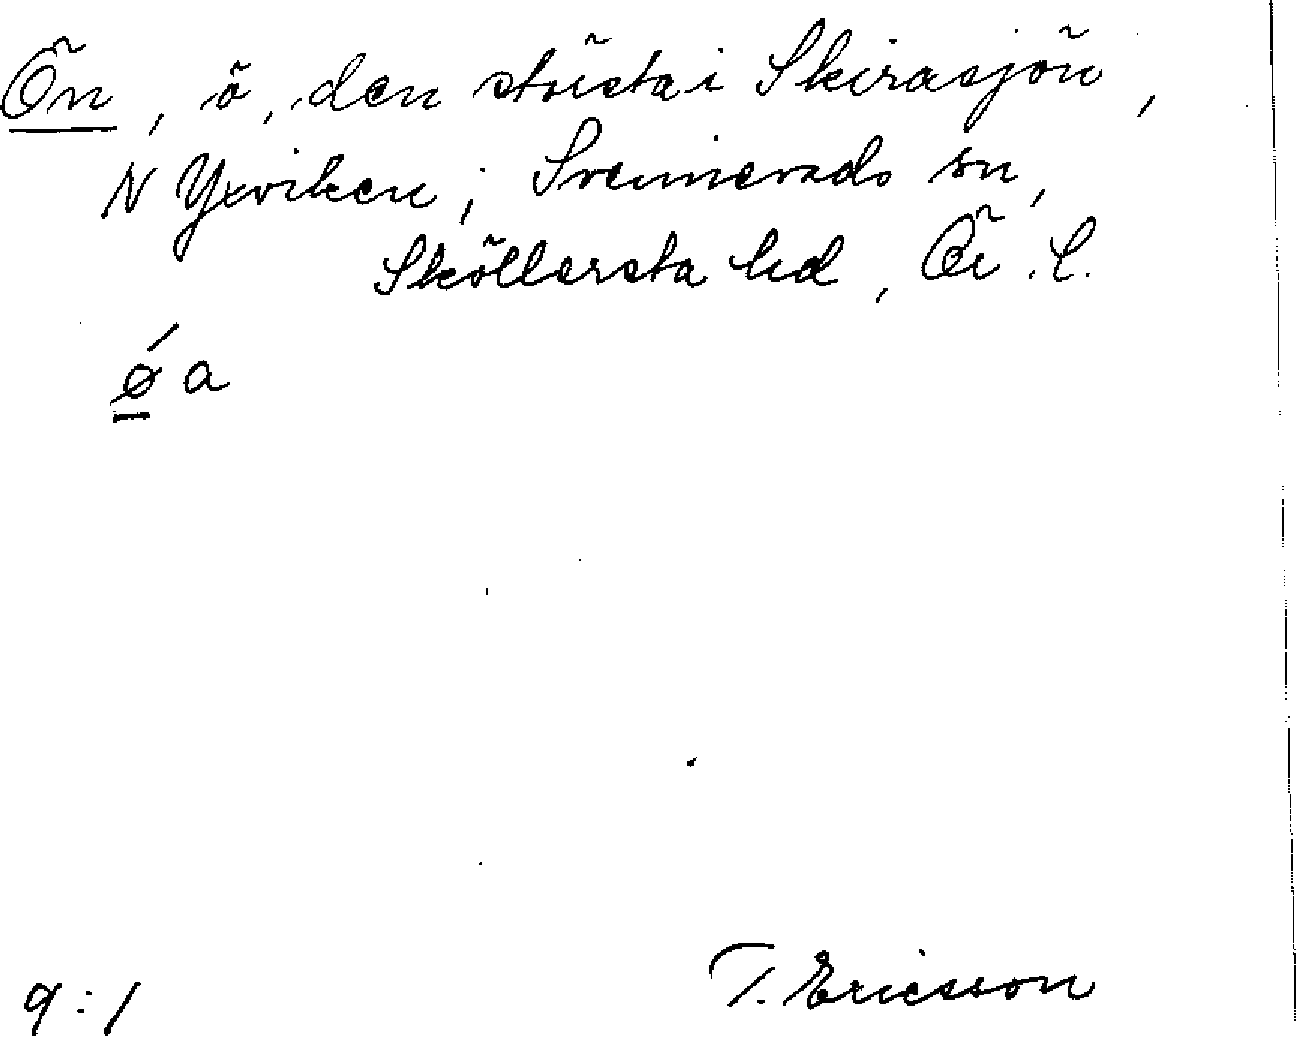 Ön, ö, den största i Skirasjön,
N Yxviken; Svennevads sn,
Sköllersta hd, Ör. l.
ǿ a
9:1
T. Ericsson